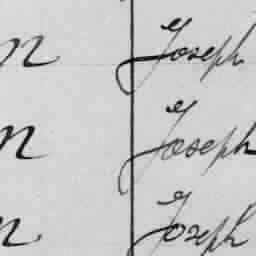 n Joseph
n Joseph
n Joseph